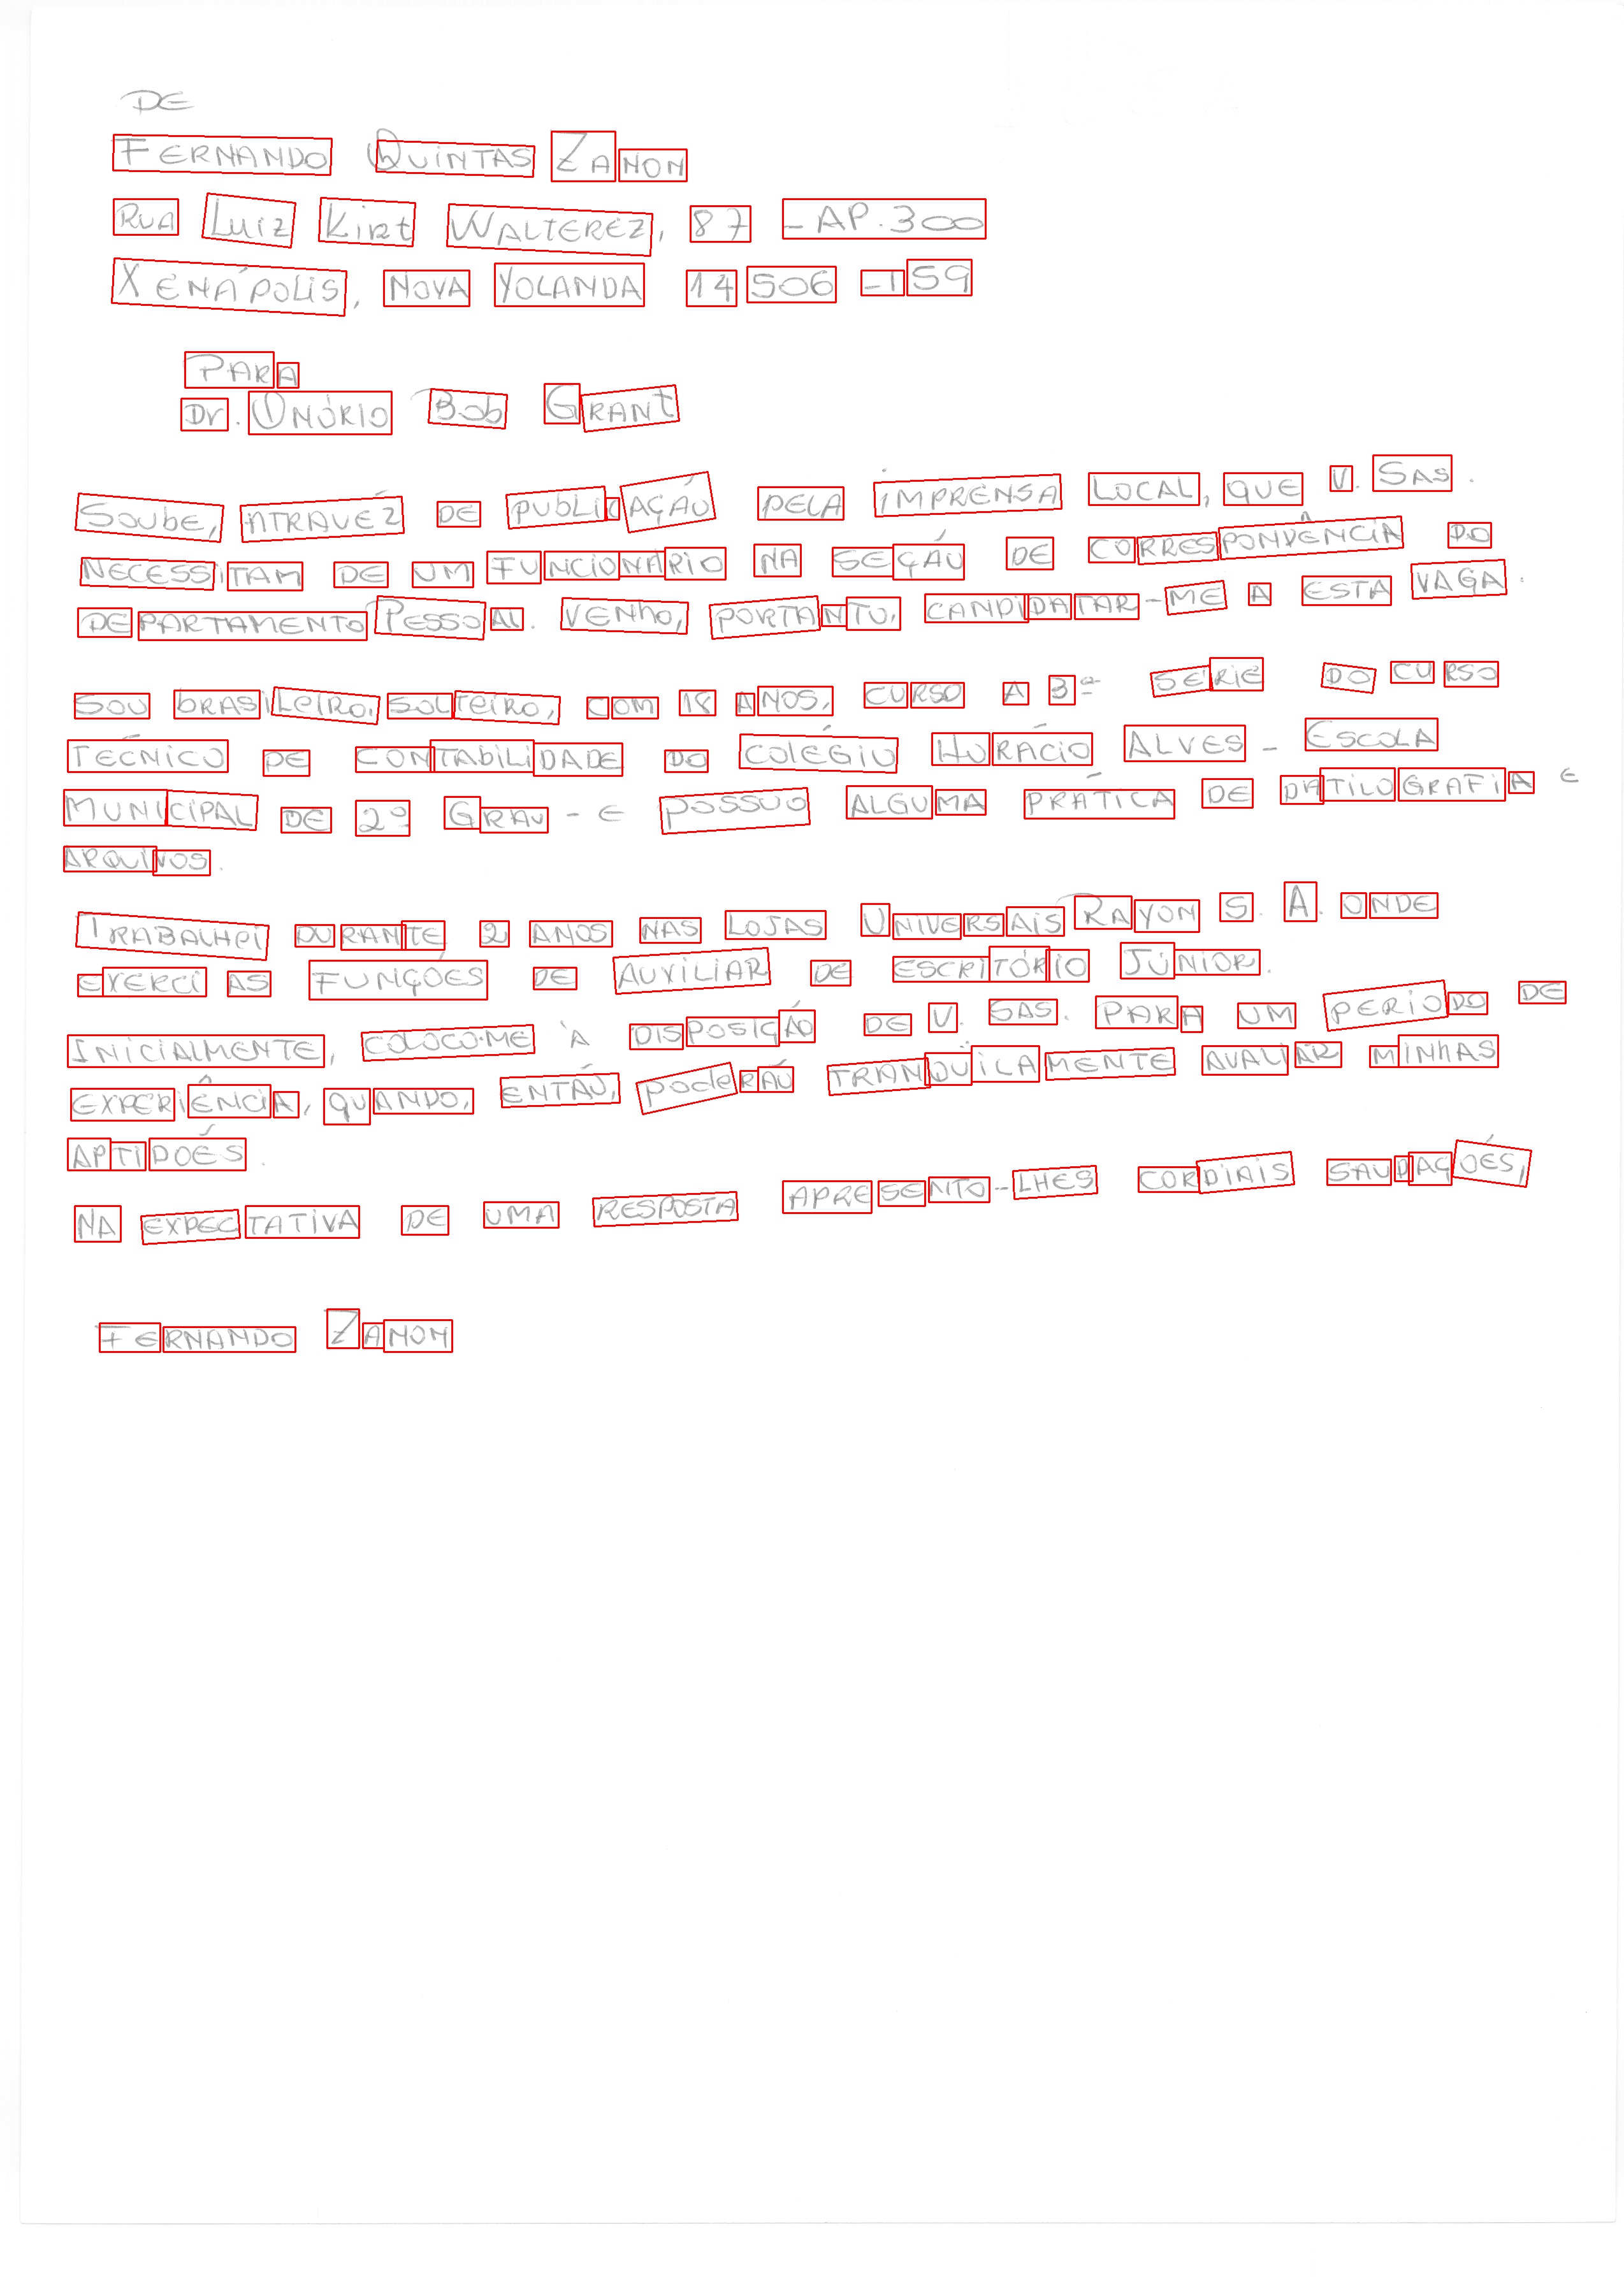 DE
FERNANDO QUINTAS ZANON
RUA LUIZ KIRT WALTEREZ, 87 - AP. 300
XENÁPOLIS, NOVA YOLANDA 14506-159
PARA
Dr. ONÓRIO Bob GRANT
SOUBE, ATRAVÉZ DE PUBLICAÇÃO PELA IMPRENSA LOCAL, QUE V. SAS.
NECESSITAM DE UM FUNCIONÁRIO NA SEÇÃO DE CORRESPONDÊNCIA DO
DEPARTAMENTO PESSOAL. VENHO, PORTANTO, CANDIDATAR-ME A ESTA VAGA.
SOU BRASILEIRO, SOLTEIRO, COM 18 ANOS, CURSO A 3ª SÉRIE DO CURSO
TÉCNICO DE CONTABILIDADE DO COLÉGIO HORÁCIO ALVES - ESCOLA
MUNICIPAL DE 2º GRAU - E POSSUO ALGUMA PRÁTICA DE DATILOGRAFIA E
ARQUIVOS.
TRABALHEI DURANTE 2 ANOS NAS LOJAS UNIVERSAIS RAYON S. A. ONDE
EXERCI AS FUNÇÕES DE AUXILIAR DE ESCRITÓRIO JÚNIOR.
INICIALMENTE, COLOCO-ME À DISPOSIÇÃO DE V. SAS. PARA UM PERÍODO DE
EXPERIÊNCIA, QUANDO, ENTÃO, poderÃO TRANQÜILAMENTE AVALIAR MINHAS
APTIDÕES.
NA EXPECTATIVA DE UMA RESPOSTA APRESENTO-LHES CORDIAIS SAUDAÇÕES,
FERNANDO ZANON